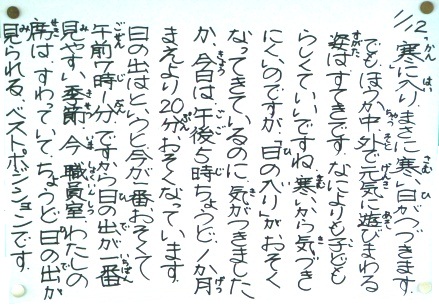 1/12.「寒」に入り、まさに寒い日がつづきます。
でもほうか中外で元気に遊びまわる
姿はすてきです。なによりも子ども
らしくていいですね。寒いから気づき
にくいのですが「日の入り」がおそく
なってきているのに気がつきました
か。今日は、午後5時ちょうど。1か月
まえより20分おそくなっています。
日の出はというと今が一番おそくて
午前7時1分ですから日の出が一番
見やすい季節。今、職員室わたしの
席は、すわっていて、ちょうど日の出が
見られるベストポジションです。